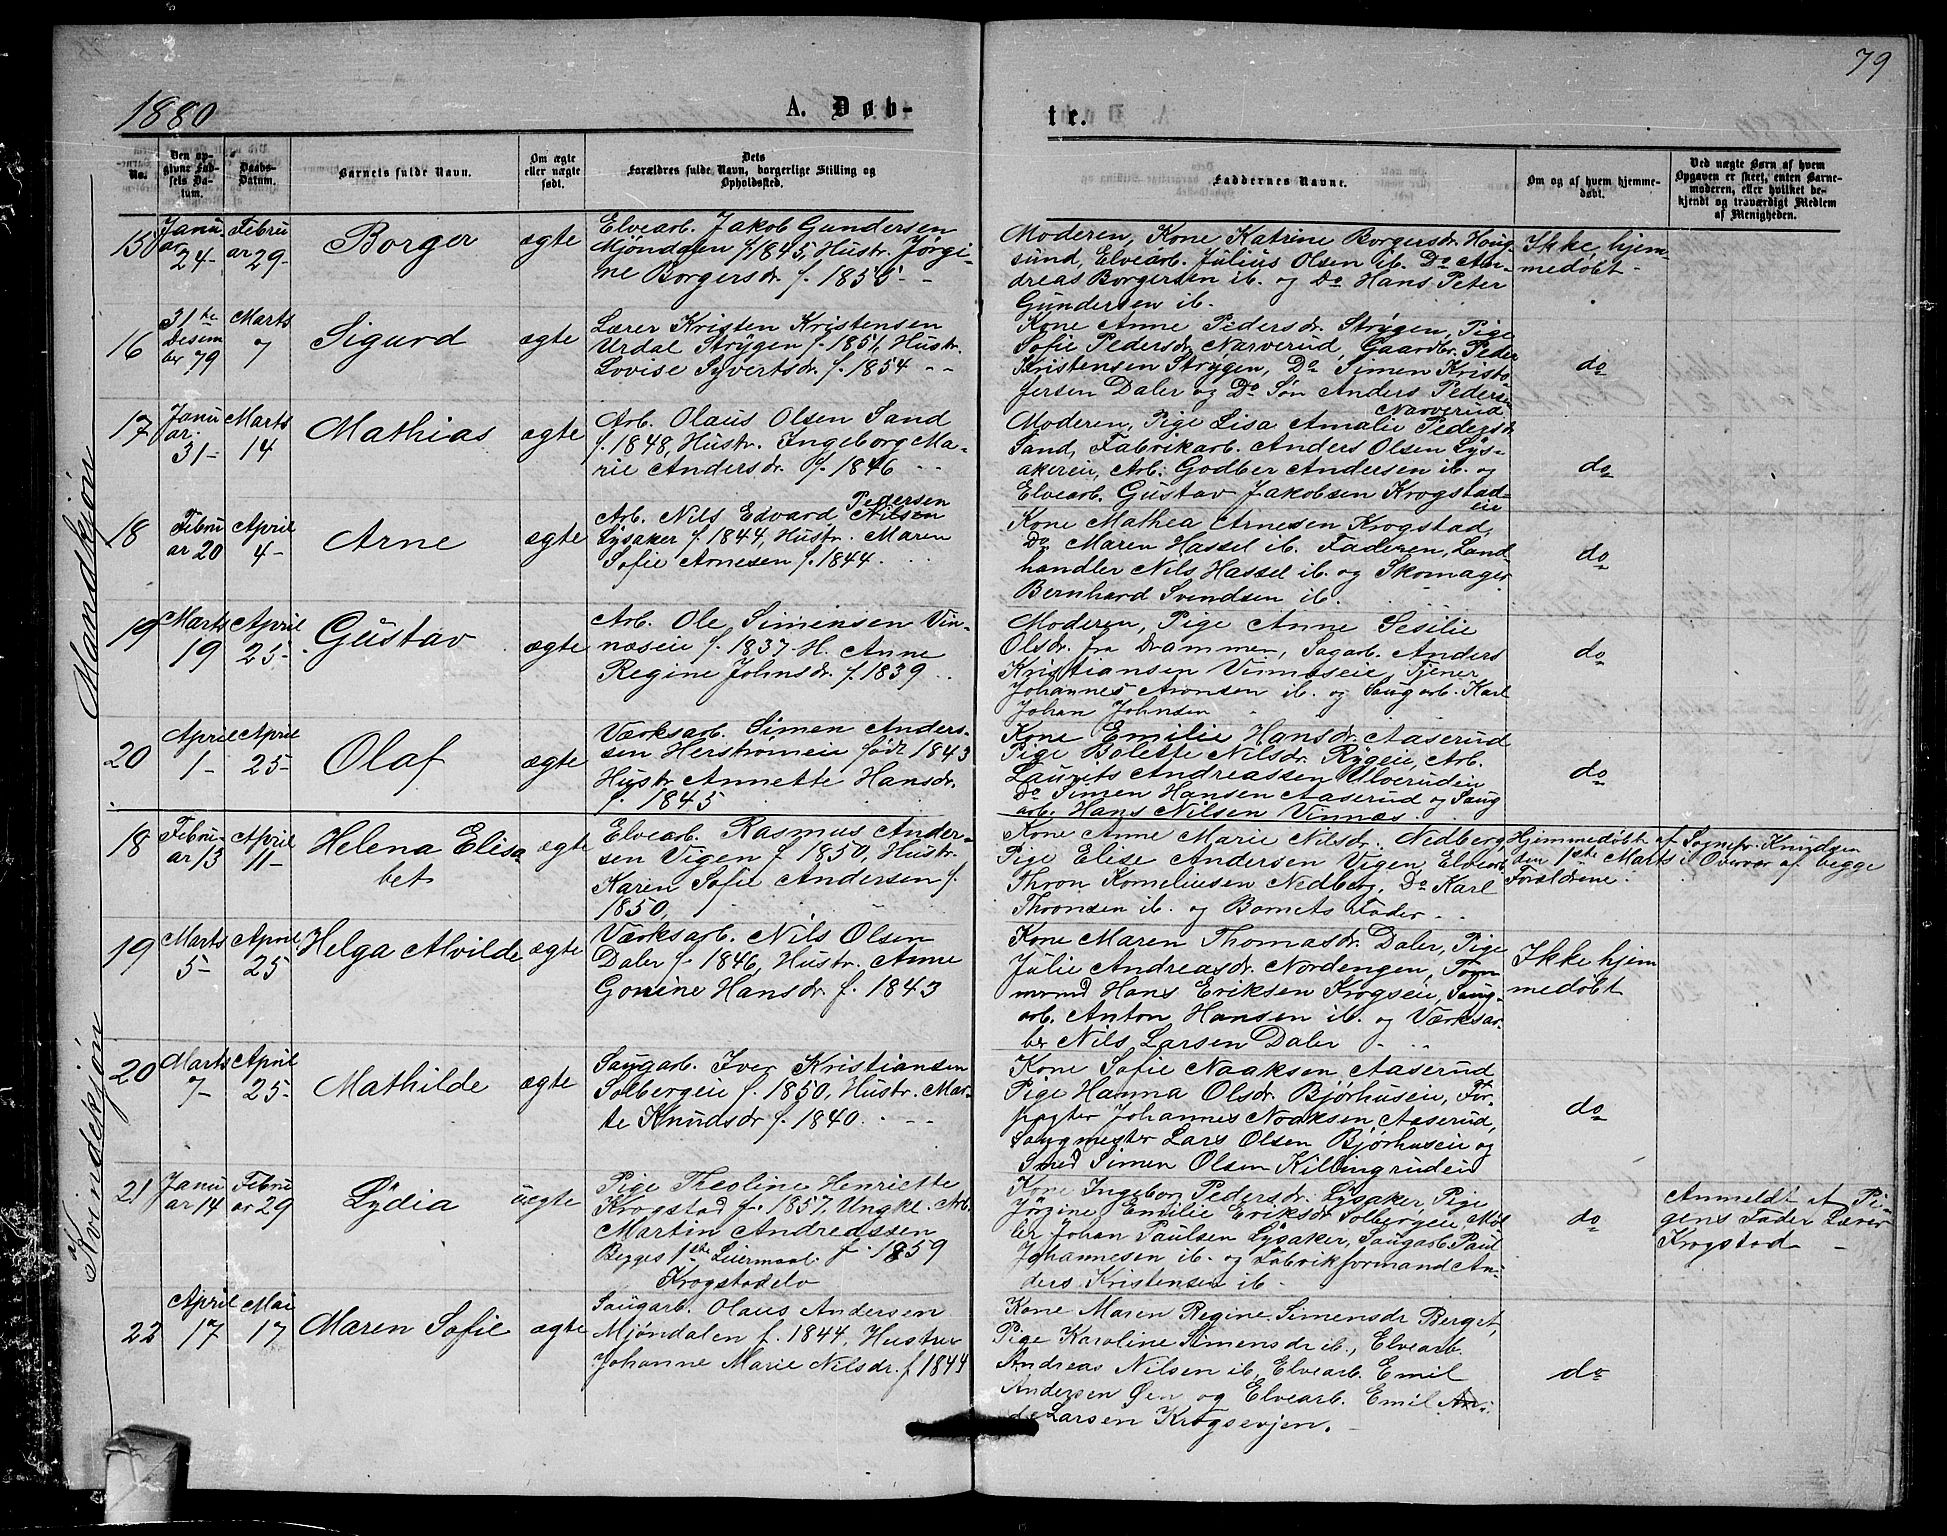 79
1880 A. Døb- te.
No. Den opgivne Fødsels Datum Daabs-Datum. Barnets fulde Navn. Om ægte eller uægte født. Dets Forældres fulde Navn, borgerlige Stilling og Opholdssted. Faddernes Navne. Om og af hvem hjemmedøbt. Ved uægte Børn af hvem Opgaven er skeet, enten Barnemoderen, eller hvilket bekjendt og troværdigt Medlem af Menigheden.
Mandkjøn
15 Januar 24- Februar 29- Borger ægte
Elvearb. Jakob Gundersen
Mjøndalen f. 1845, Hustr. Jørgi-
ne Borgersdr. f. 1855 - -
Moderen, Kone Katrine Borgersdr. Houg-
sund, Elvearb. Julius Olsen ib. Do An-
dreas Borgersen ib. og Do Hans Peter
Gundersen ib.
Ikke hjem-
medøbt -
16 31te Desember 79 Marts 7 Sigurd ægte
Lærer Kristen Kristensen
Urdal Strygen f. 1851, Hustr.
Lovise Syvertsdr. f. 1854 - -
Kone Anne Pedersdr. Strygen, Pige
Sofie Pedersdr. Narverud, Gaardbr. Peder
Kristensen Strygen, Do Simen Kristo-
fersen Daler og Do Søn Anders Pedersen
Narverud
do
17 Januar 31- Marts 14 Mathias ægte
Arb. Olaus Olsen Sand
f. 1848, Hustr. Ingeborg Ma-
rie Andersdr. f. 1846 - -
Moderen, Pige Lisa Amalie Pedersdr.
Sand, Fabrikarb. Anders Olsen Lys-
akereie, Arb. Godber Andersen ib. og
Elvearb. Gustav Jakobsen Krogstad-
eie
do
18 Februar 20 April 4- Arne ægte
Pedersen
Arb. Nils Edvard Nilsen
Lysaker f. 1844, Hustr. Maren
Sofie Arnesen f. 1844.
Kone Mathea Arnesen Krogstad,
Do Maren Hassel ib. Faderen, Land-
handler Nils Hassel ib. og Skomager
Bernhard Svendsen ib.
do
19 Marts 19 April 25- Gustav ægte
Arb. Ole Simensen Vin-
næseie f. 1837 H. Anne
Regine Johnsdr. f. 1839 - -
Moderen, Pige Anne Sesilie
Olsdr. fra Drammen, Sagarb. Anders
Kristiansen Vinnæseie, Tjener
Johannes Aronsen ib. og Saugarb. Karl
Johan Johnsen
do
20 April 1- April 25- Olaf ægte
Værksarb. Simen Anders-
sen Herstrømeie født 1843
Hustr. Annette Hansdr.
f. 1845
Kone Emilie Hansdr. Aaserud
Pige Bolette Nilsdr. Rygeie, Arb.
Laurits Andreassen Ulverudeie
Do Simen Hansen Aaserud og Saug
arb. Hans Nilsen Vinnæs.
do
Kvindekjøn
18 Februar 13 April 11- Helena Elisabet ægte
Elvearb. Rasmus Ander-
sen Vigen f. 1850, Hustr.
Karen Sofie Andersen f.
1850,
Kone Anne Marie Nilsdr. Nedberg,
Pige Elise Andersen Vigen, Elvearb.
Thron Korneliusen Nedberg, Do Karl
Thronsen ib. og Barnets Fader - -
Hjemmedøbt af Sognepr. Knudzen
den 1ste Marts i Overvær af begge
Forældrene.
19 Marts 5- April 25 Helga Alvilde ægte
Værksarb. Nils Olsen
Daler f. 1846, Hustr. Anne
Gonine Hansdr. f. 1843
Kone Maren Thomasdr. Daler, Pige
Julie Andreasdr. Nordengen, Tøm-
mermd Hans Eriksen Krogseie, Saug-
arb. Anton Hansen ib. og Værksar-
ber Nils Larsen Daler -
Ikke hjem
medøbt
20 Marts 7- April 25- Mathilde ægte
Saugarb. Iver Kristiansen
Solbergeie f. 1850, Hustr. Mar-
te Knudsdr. f. 1840. - -
Kone Sofie Naaksen Aaserud
Pige Hanna Olsdr. Bjørhuseie, For-
pagter Johannes Noaksen Aaserud,
Saugmester Lars Olsen Bjørhuseie og
Smed Simen Olsen Killingrudeie
do
21 Januar 14 Februar 29 Lydia uægte
Pige Theoline Henriette
Krogstad f. 1857, Ungk. Arb.
Martin Andreassen
Begges 1ste Leiermaal. f. 1859
Krogstadelv
Kone Ingebor Pedersdr. Lysaker, Pige
Jørgine Emilie Eriksdr. Solbergeie, Møl-
ler Johan Paulsen Lysaker, Saugarb. Paul
Johannesen ib. og Fabrikformand An-
ders Kristensen ib.
do
Anmeldt af Pi-
gens Fader Lærer
Krogstad -
22 April 17 Mai 17 Maren Sofie ægte
Saugarb. Olaus Andersen
Mjøndalen f. 1844, Hustru
Johanne Marie Nilsdr. f 1844
Kone Maren Regine Simensdr Berget,
Pige Karoline Simensdr ib., Elvearb.
Andreas Nilsen ib, Elvearb. Emil
Andersen Øen og Elvearb. Emil An-
de Larsen Krogsevjen.
do